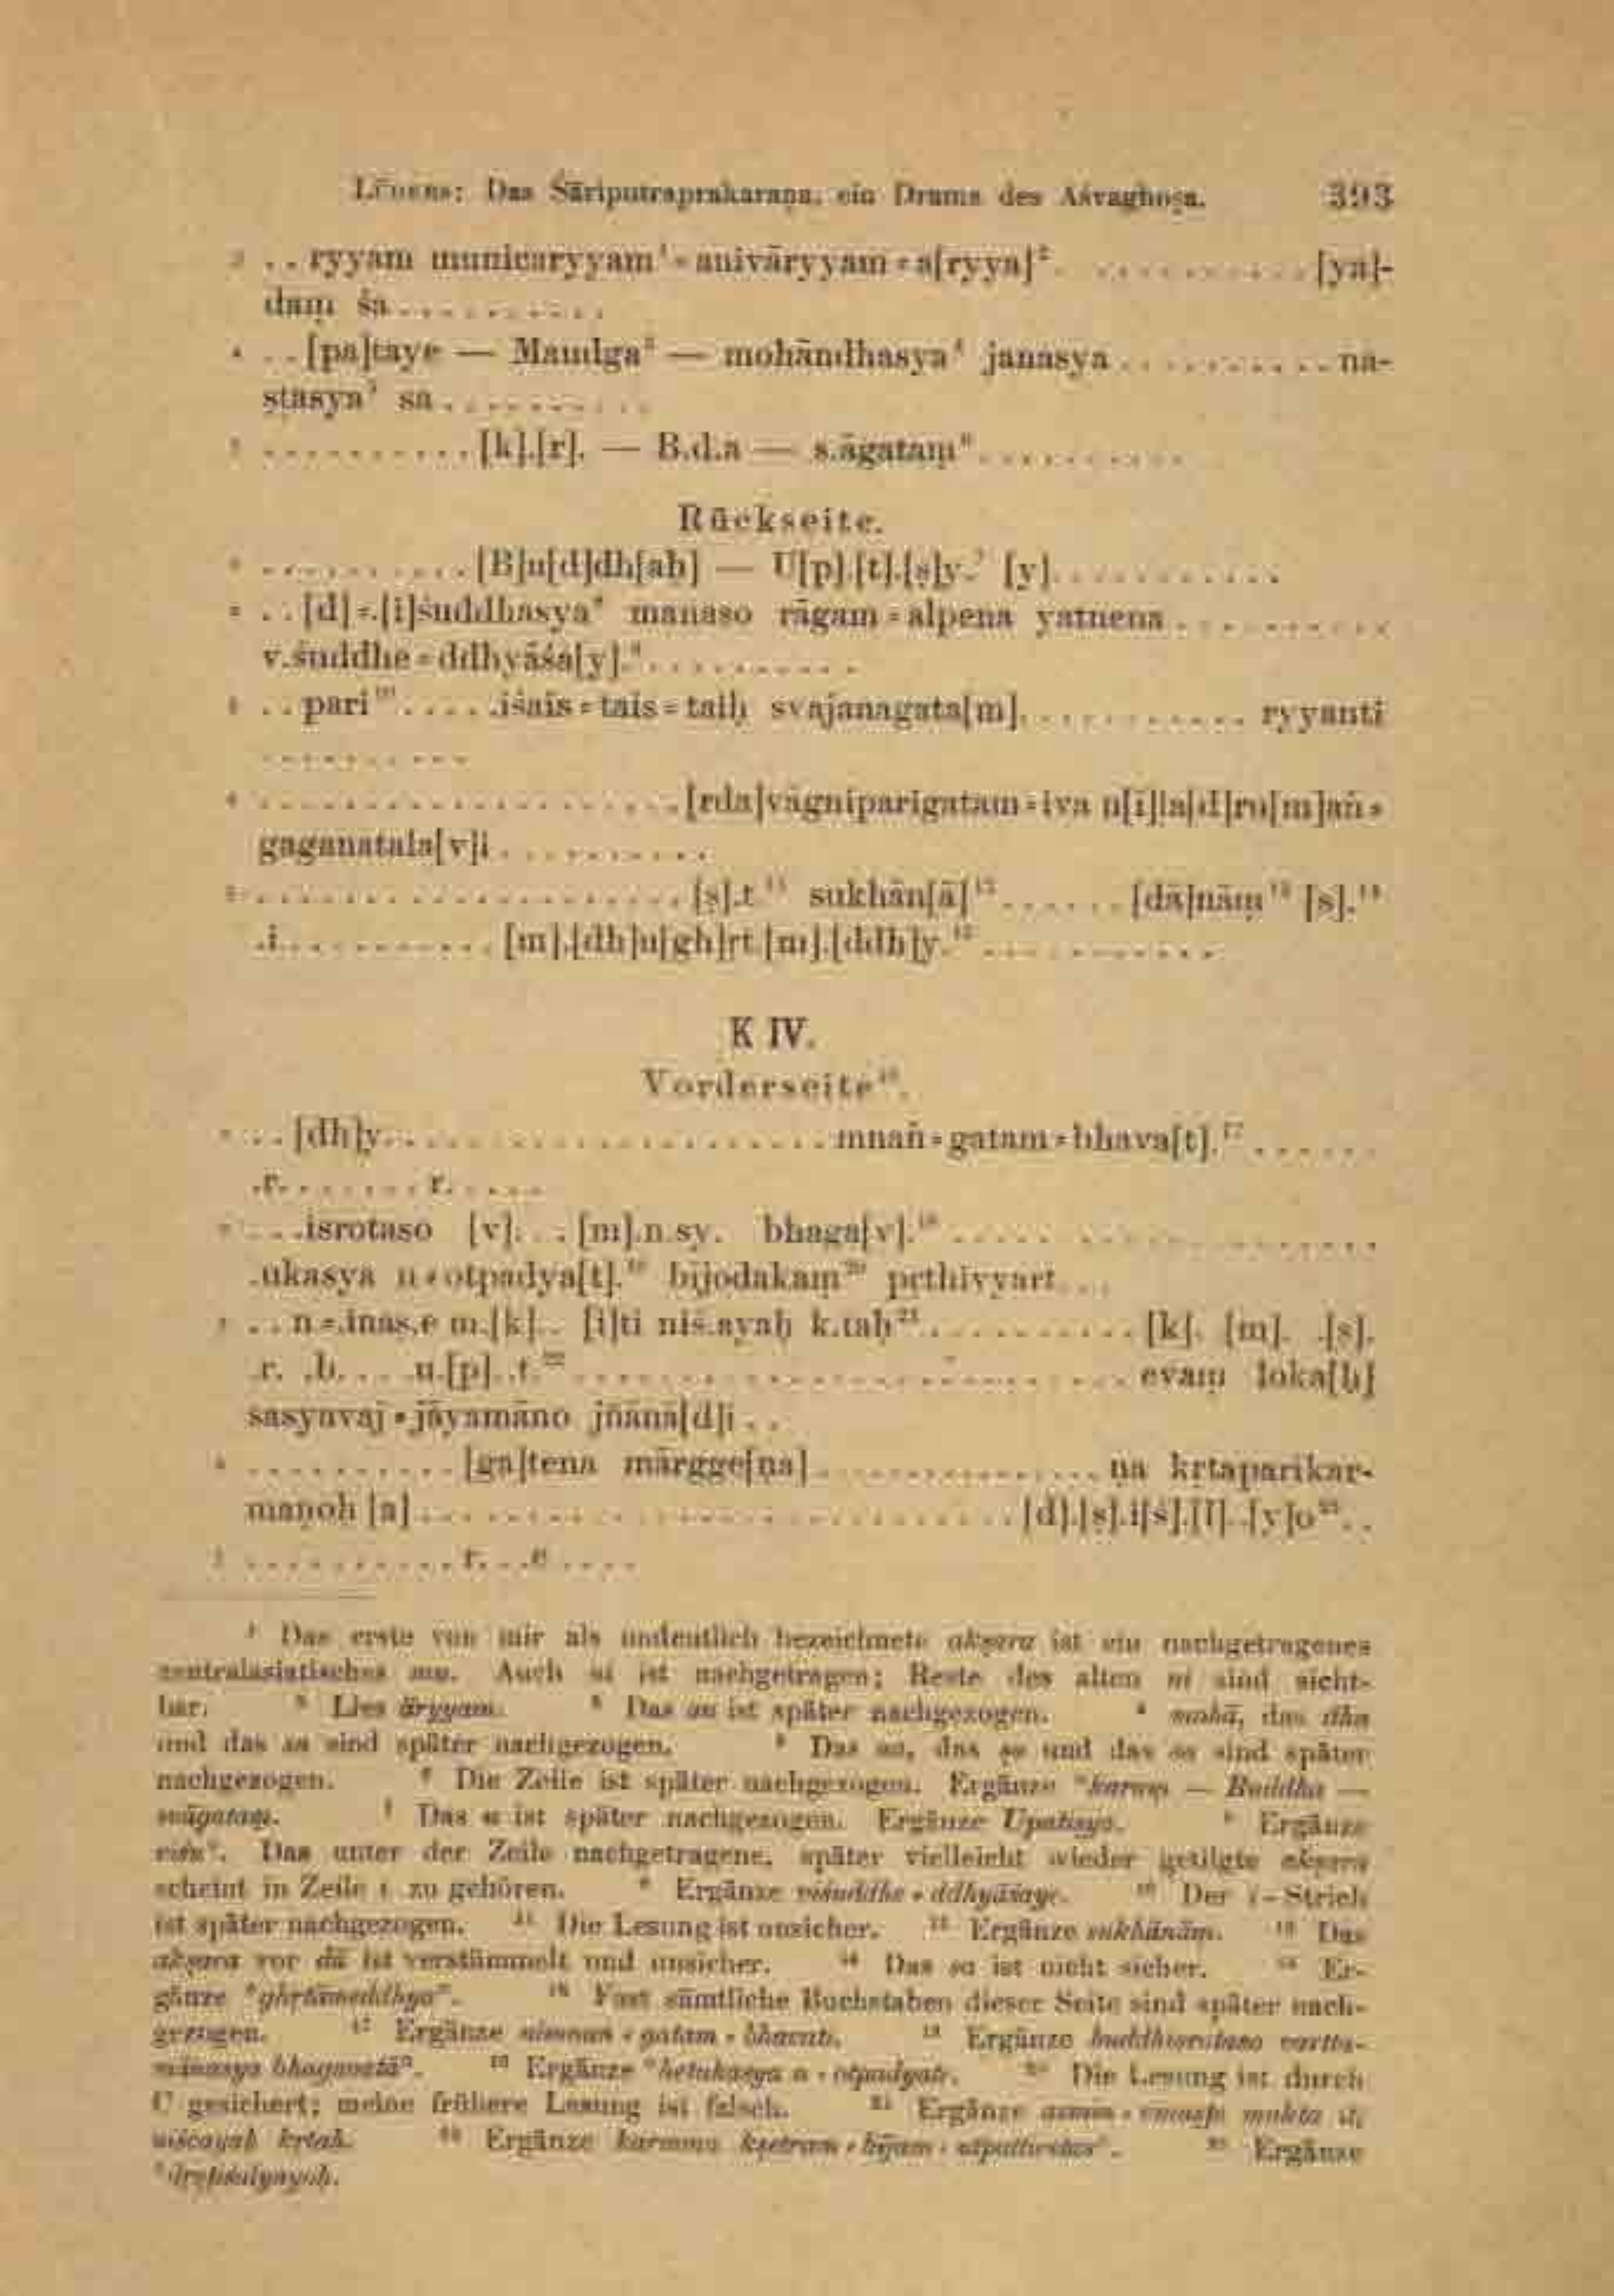 Lüders: Das Śāriputraprakaraṇa, ein Drama des Aśvaghoṣa. 393
3 . . ryyam municaryyam¹=anivāryyam=a[ryya]². . . . . . . . . . . [ya]-
daṃ śa . . . . . . . . . .
4 . . [pa]taye — Maudga³ — mohāndhasya⁴ janasya . . . . . . . . . . na-
ṣṭasya⁵ sa . . . . . . . . . .
5 . . . . . . . . . . [k].[r]. — B.d.a — s.āgataṃ⁶ . . . . . . . . . .
Rückseite.
1 . . . . . . . . . . [B]u[d]dh[aḥ] — U[p].[t].[ṣ]y.⁷ [y]. . . . . . . . . . .
2 . . [d]=.[i]śuddhasya⁸ manaso rāgam=alpena yatnena . . . . . . . . . .
v.śuddhe=ddhyāśa[y].⁹ . . . . . . . . . .
3 . . pari¹⁰ . . . . .iśais=tais=taiḥ svajanagata[m]. . . . . . . . . . . ryyanti
. . . . . . . . . .
4 . . . . . . . . . . . . . . . . . . . . [rda]vāgniparigatam=iva n[ī]la[d]ru[m]aṅ=
gaganatala[v]i . . . . . . . . . .
5 . . . . . . . . . . . . . . . . . . . . [ṣ].t.¹¹ sukhān[ā]¹² . . . . . . [dā]nāṃ¹³ [s].¹⁴
.i. . . . . . . . . . . [m].[dh]u[gh]rt.[m].[ddh]y.¹⁵ . . . . . . . . . . .
K IV.
Vorderseite¹⁶.
1 . . [dh]y. . . . . . . . . . . . . . . . . . . . . mnaṅ=gatam=bhava[t].¹⁷ . . . . . .
.r. . . . . . . . r. . . . .
2 . . .isrotaso [v]. . . [m].n.sy. bhaga[v].¹⁸ . . . . . . . . . . . . . . . . . . . .
.ukasya n=otpadya[t].¹⁹ bījodakaṃ²⁰ pṛthivyart. . .
3 . . n=.inas.e m.[k]. . [i]ti niś.ayaḥ k.taḥ²¹ . . . . . . . . . . [k]. [m]. .[ṣ].
.r. .b. . . . .u.[p]. .t.²² . . . . . . . . . . . . . . . . . . . . . . . . . evaṃ loka[ḥ]
sasyavaj=jāyamāno jñānā[d]i . .
4 . . . . . . . . . . [ga]tena mārgge[ṇa] . . . . . . . . . . . . . . . ṇa kṛtaparikar-
maṇoḥ [a] . . . . . . . . . . . . . . . . . . . . . . . . . . . . . . [d].[ṣ].i[ś].[l]. .[y]o²³ . .
5 . . . . . . . . . . r. . .e . . . .
¹ Das erste von mir als undeutlich bezeichnete akṣara ist ein nachgetragenes
zentralasiatisches mu. Auch ni ist nachgetragen; Reste des alten ni sind sicht-
bar. ² Lies āryyam. ³ Das au ist später nachgezogen. ⁴ mohā, das dha
und das sa sind später nachgezogen. ⁵ Das na, das sya und das sa sind später
nachgezogen. ⁶ Die Zeile ist später nachgezogen. Ergänze °karaṃ — Buddha —
svāgataṃ. ⁷ Das u ist später nachgezogen. Ergänze Upatiṣyo. ⁸ Ergänze
viśu°. Das unter der Zeile nachgetragene, später vielleicht wieder getilgte akṣara
scheint in Zeile 1 zu gehören. ⁹ Ergänze viśuddhe=ddhyāśaye. ¹⁰ Der i-Strich
ist später nachgezogen. ¹¹ Die Lesung ist unsicher. ¹² Ergänze sukhānāṃ. ¹³ Das
akṣara vor dā ist verstümmelt und unsicher. ¹⁴ Das sa ist nicht sicher. ¹⁵ Er-
gänze °ghṛtāmeddhya°. ¹⁶ Fast sämtliche Buchstaben dieser Seite sind später nach-
gezogen. ¹⁷ Ergänze nimnaṅ=gatam=bhavati. ¹⁸ Ergänze buddhisrotaso vartta-
mānasya bhagavatā°. ¹⁹ Ergänze °hetukasya n=otpadyate. ²⁰ Die Lesung ist durch
C gesichert; meine frühere Lesung ist falsch. ²¹ Ergänze asmin=vinaṣṭe mukta iti
niścayaḥ kṛtaḥ. ²² Ergänze karmma kṣetram=bījam=utpattivitas°. ²³ Ergänze
°dṛṣṭiśīlyayoḥ.